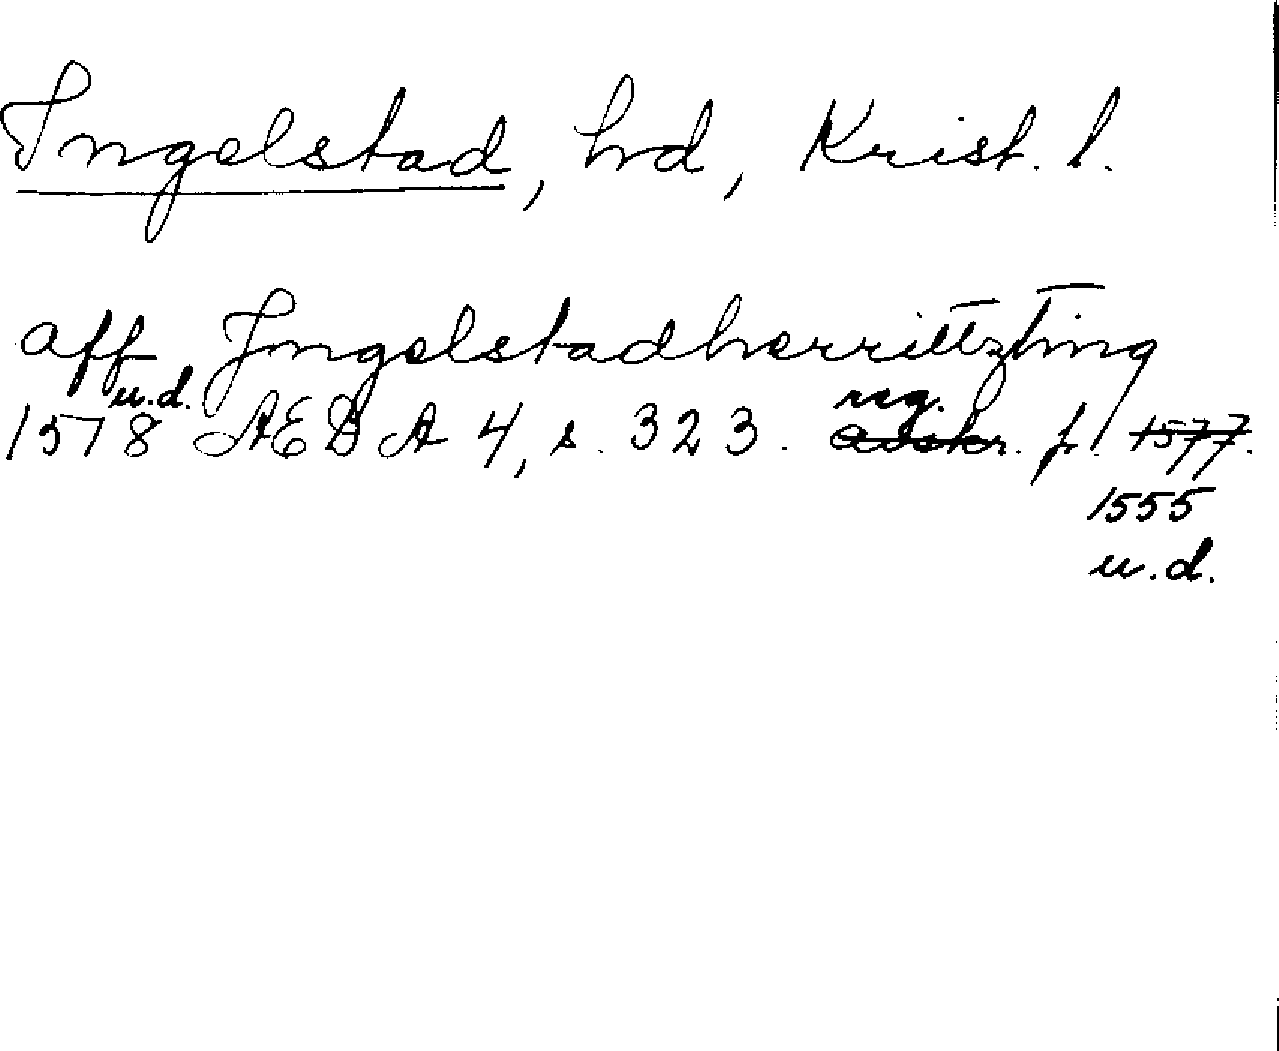 Ingelstad, hd, Krist. l.
aff Jngelstadherrittzting
u.d. reg.
1578 AEB A 4, s. 323. avskr. f. 1577.
1555
u.d.